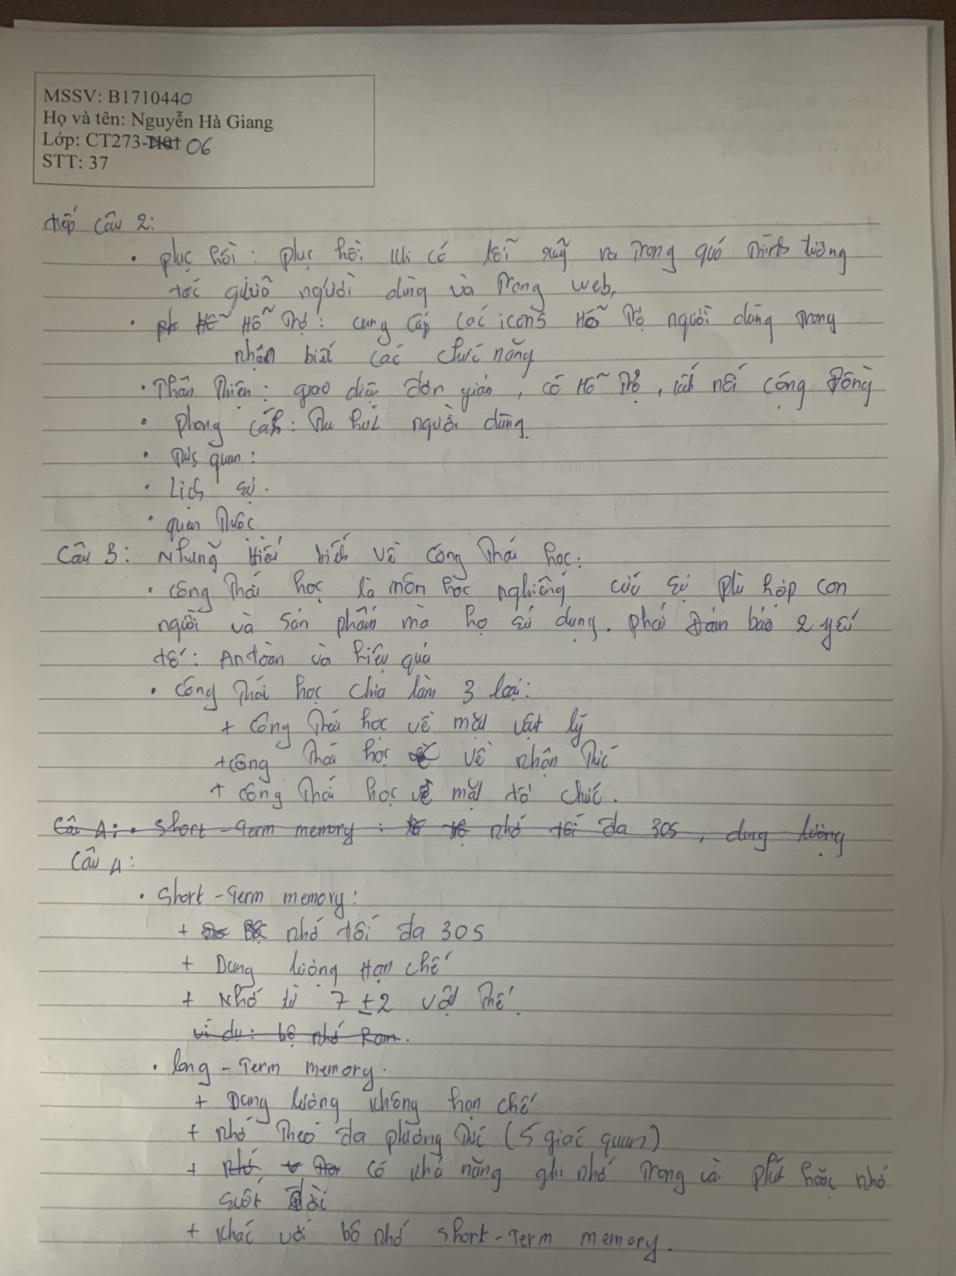 MSSV: B1710440
Họ và tên: Nguyễn Hà Giang
Lớp: CT273-06
STT: 37
tiếp câu 2:
• phục hồi: phục hồi khi có lỗi xảy ra trong quá trình tương
tác giữa người dùng và trang web,
• Hỗ trợ: cung cấp các icons Hỗ trợ người dùng trong
nhận biết các chức năng
• Thân thiện: giao diện đơn giản, có Hỗ trợ, kết nối cộng đồng
• phong cách: thu hút người dùng.
• trực quan:
• Lịch sự.
• quen thuộc
Câu 3: Những Hiểu biết về công thái học:
• công thái học là môn học nghiêng cứu sự phù hợp con
người và sản phẩm mà họ sử dụng. phải Đảm bảo 2 yếu
tố: An toàn và hiệu quả
• công thái học chia làm 3 loại:
+ công thái học về mặt vật lý
+ công thái học về nhận thức
+ công thái học về mặt tổ chức.
Câu 4: • Short-Term memory: nhớ tối đa 30s, dung lượng
Câu 4:
• Short-Term memory:
+ nhớ tối đa 30s
+ Dung lượng Hạn chế
+ Nhớ từ 7 ± 2 vật thể
ví dụ: bộ nhớ Ram.
• long-Term memory.
+ Dung lượng không hạn chế
+ nhớ Theo đa phương thức (5 giác quan)
+ có khả năng ghi nhớ trong vài phút hoặc nhớ
suốt đời
+ khác với bộ nhớ short-Term memory.